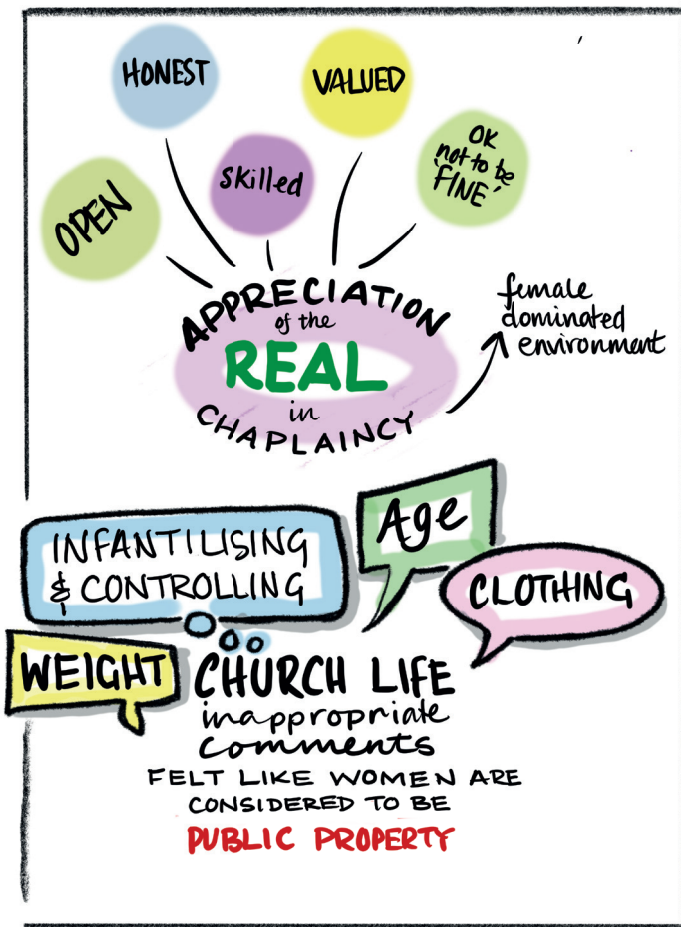 HONEST
VALUED
OPEN
skilled
OK
not to be
'FINE'
APPRECIATION
of the
REAL
in
CHAPLAINCY
female
dominated
environment
INFANTILISING
& CONTROLLING
Age
CLOTHING
WEIGHT
CHURCH LIFE
inappropriate
comments
FELT LIKE WOMEN ARE
CONSIDERED TO BE
PUBLIC PROPERTY